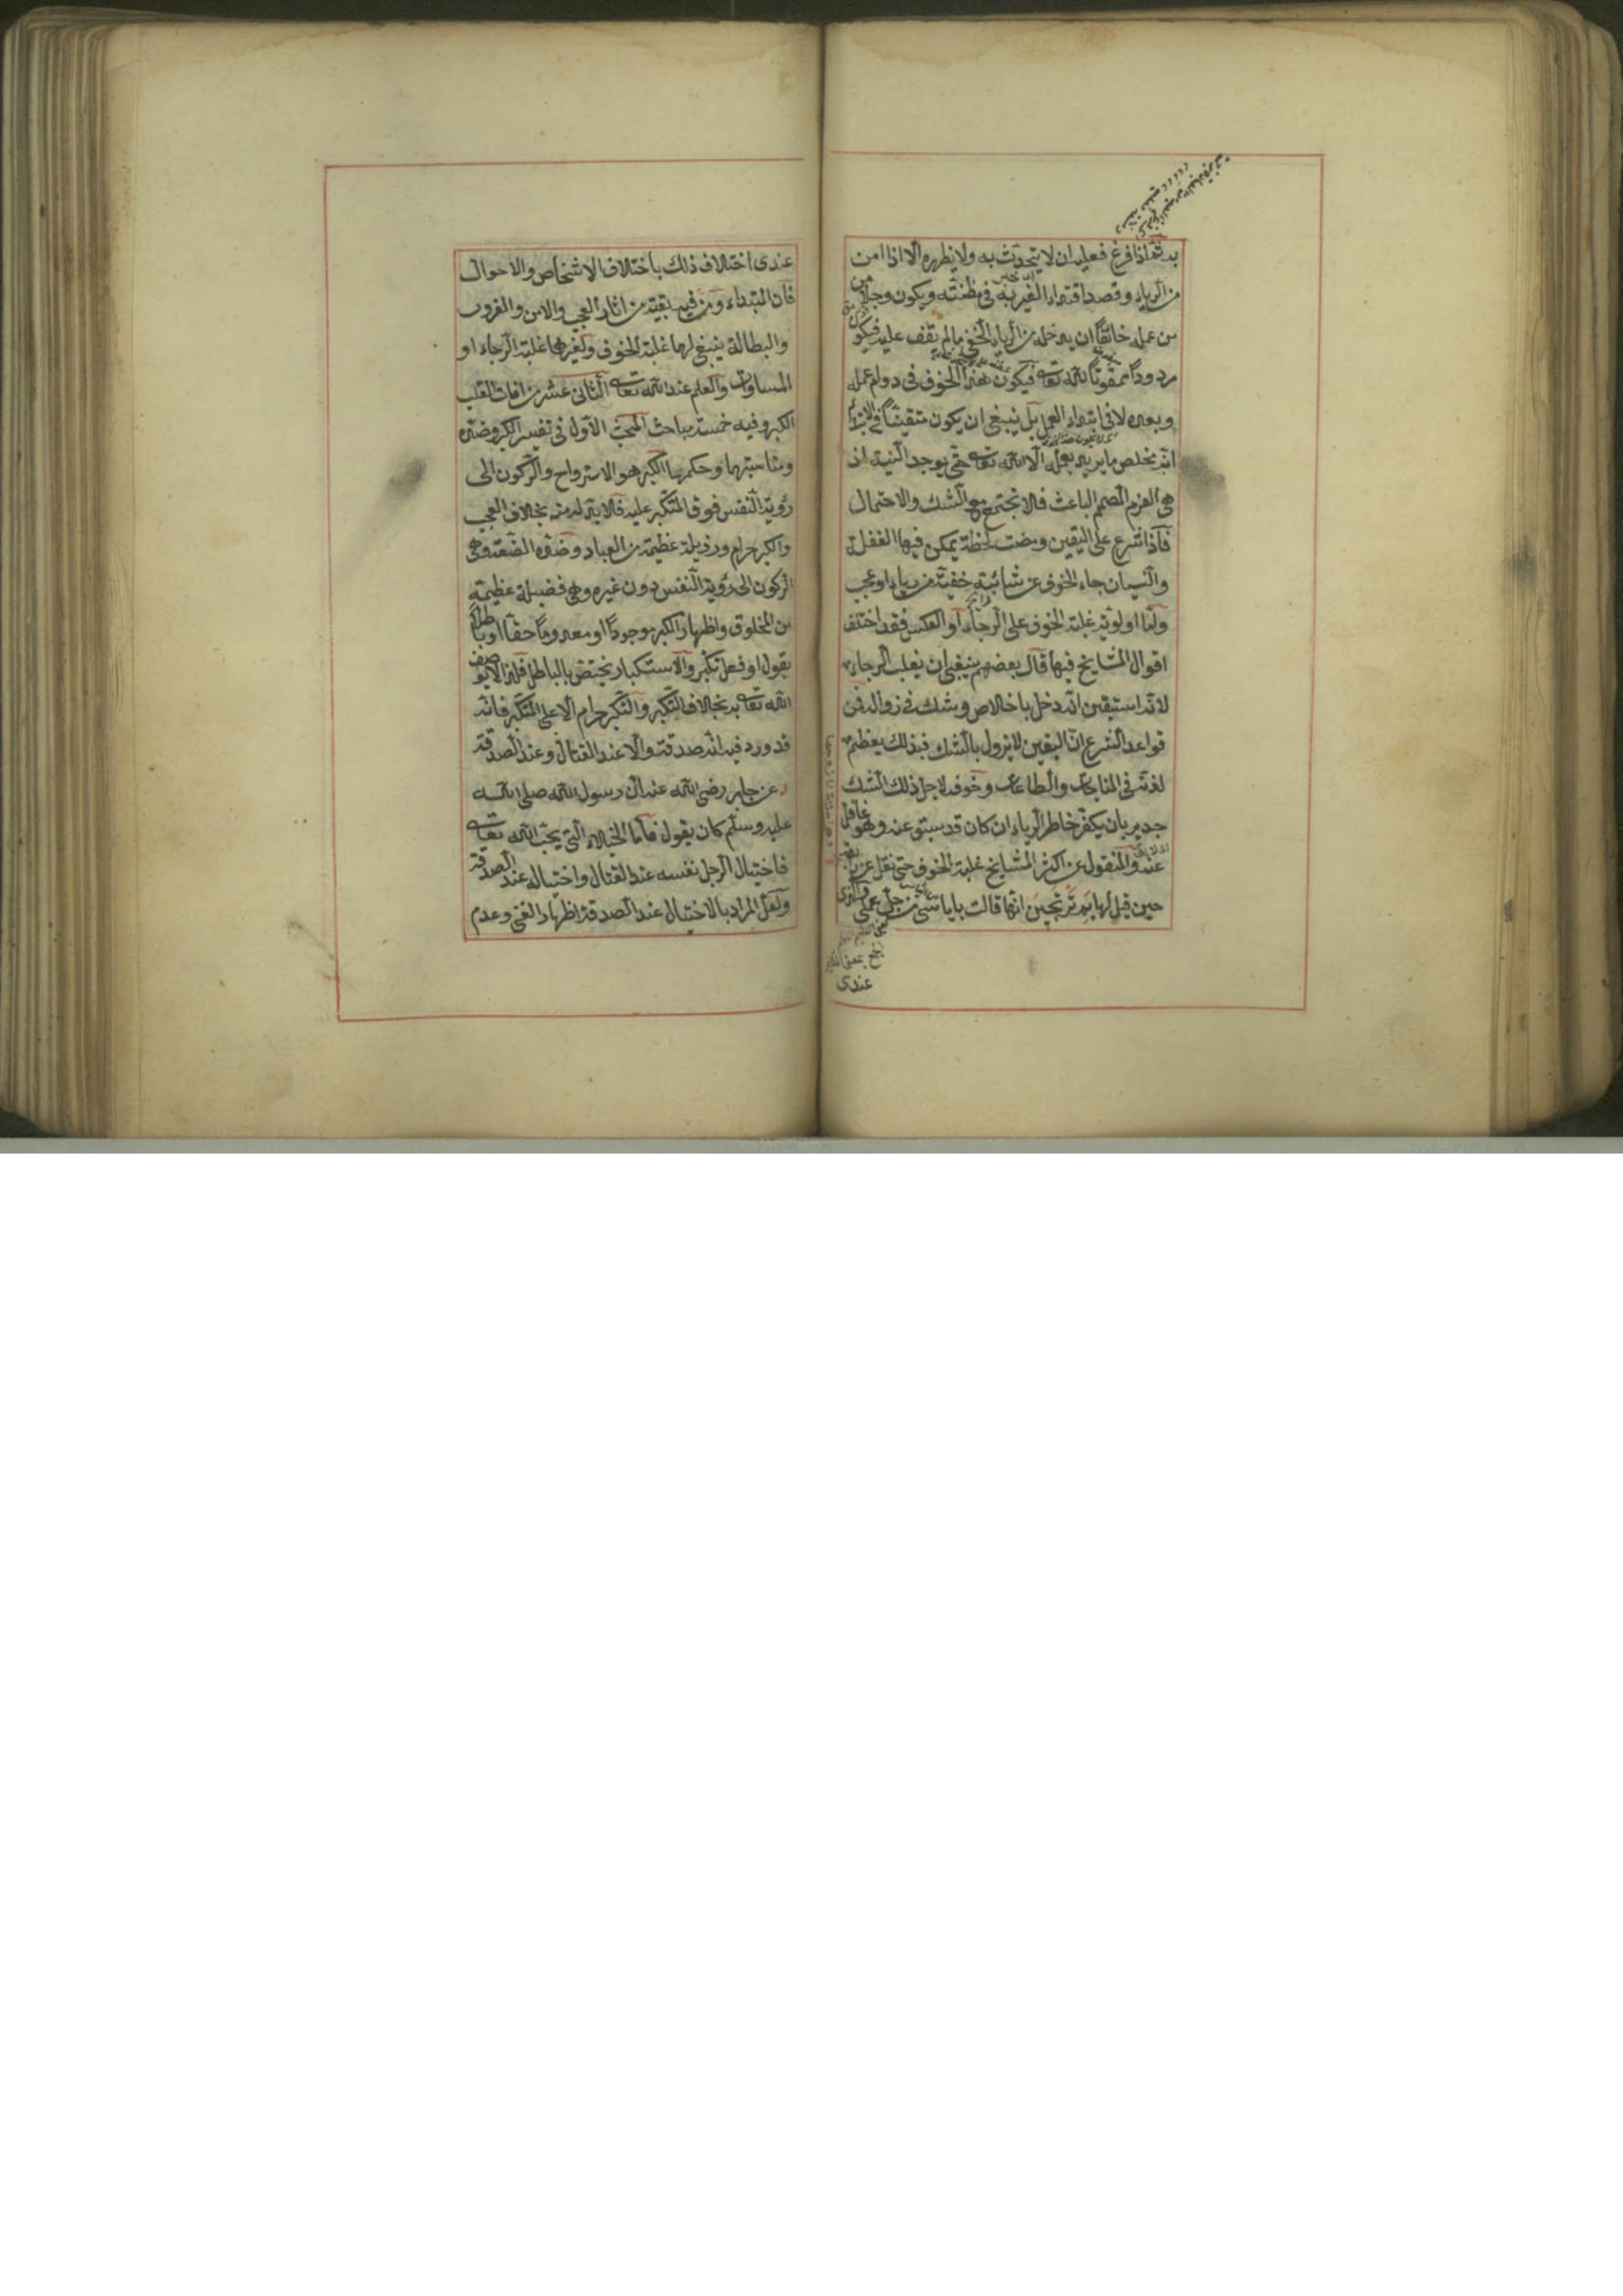 به ثم اذا فرغ فعليه ان لا يتحدث به ولا يظهره الا اذا امن
من الرياء وقصد اقتداء الغير به في مظنته ويكون وجلا
من عمله خائفا ان يدخله من الرياء الخفي ما لم يقف عليه فيكون
مردودا ممقوتا لله تعالى فيكون هذا الخوف في دوام عمله
وبعده لا في ابتداء العمل بل ينبغي ان يكون متيقنا في الابتداء
انه مخلص ما يريد بعمله الا الله تعالى حتى يوجد النية اذ
هي العزم المصمم الباعث فلا تجتمع مع الشك والاحتمال
فاذا شرع على اليقين ومضت لحظة يمكن فيها الغفلة
والنسيان جاء الخوف عن شائبة خفية من رياء او عجب
واما اولوية غلبة الخوف على الرجاء او العكس فقد اختلف
اقوال المشايخ فيها قال بعضهم ينبغي ان يغلب الرجاء
لانه استيقن انه دخل باخلاص وشك في زواله فمن
قواعد الشرع ان اليقين لا يزول بالشك فبذلك يعظم
لذته في المناجات والطاعات وخوفه لاجل ذلك الشك
جدير بان يكفر خاطر الرياء ان كان قد سبق عنه وهو غافل
عنه والمنقول عن اكثر المشايخ غلبة الخوف حتى نقل عن رابعة
حين قيل لها بم ترتجين انها قالت باياسي من جل عملي والذي
عندي
عندي اختلاف ذلك باختلاف الاشخاص والاحوال
فان المبتداء ومن فيه بقية من اثار العجب والامن والغرور
والبطالة ينبغي لها غلبة الخوف ولغيرها غلبة الرجاء او
المساوات والعلم عند الله تعالى الثاني عشر من افات القلب
الكبر وفيه خمسة مباحث المبحث الاول في تفسير الكبر وضده
ومناسبتها وحكمها الكبر هو الاسترواح والركون الى
رؤية النفس فوق المتكبر عليه فلا بد له منه بخلاف العجب
والكبر حرام ورذيلة عظيمة من العباد وضده الضعة وهي
الركون الى رؤية النفس دون غيره وهي فضيلة عظيمة
من المخلوق واظهار الكبر موجودا او معدوما حقا او باطلا
بقول او فعل تكبر والاستكبار يختص بالباطل فلذا لا يوصف
الله تعالى به بخلاف التكبر والتكبر حرام الا على المتكبر فانه
قد ورد فيه انه صدقة والا عند القتال وعند الصدقة
عن جابر رضي الله عنه ان رسول الله صلى الله
عليه وسلم كان يقول فاما الخيلاء التي يحب الله تعالى
فاختيال الرجل نفسه عند القتال واختياله عند الصدقة
ولعل المراد بالاختيال عند الصدقة اظهار الغنى وعدم